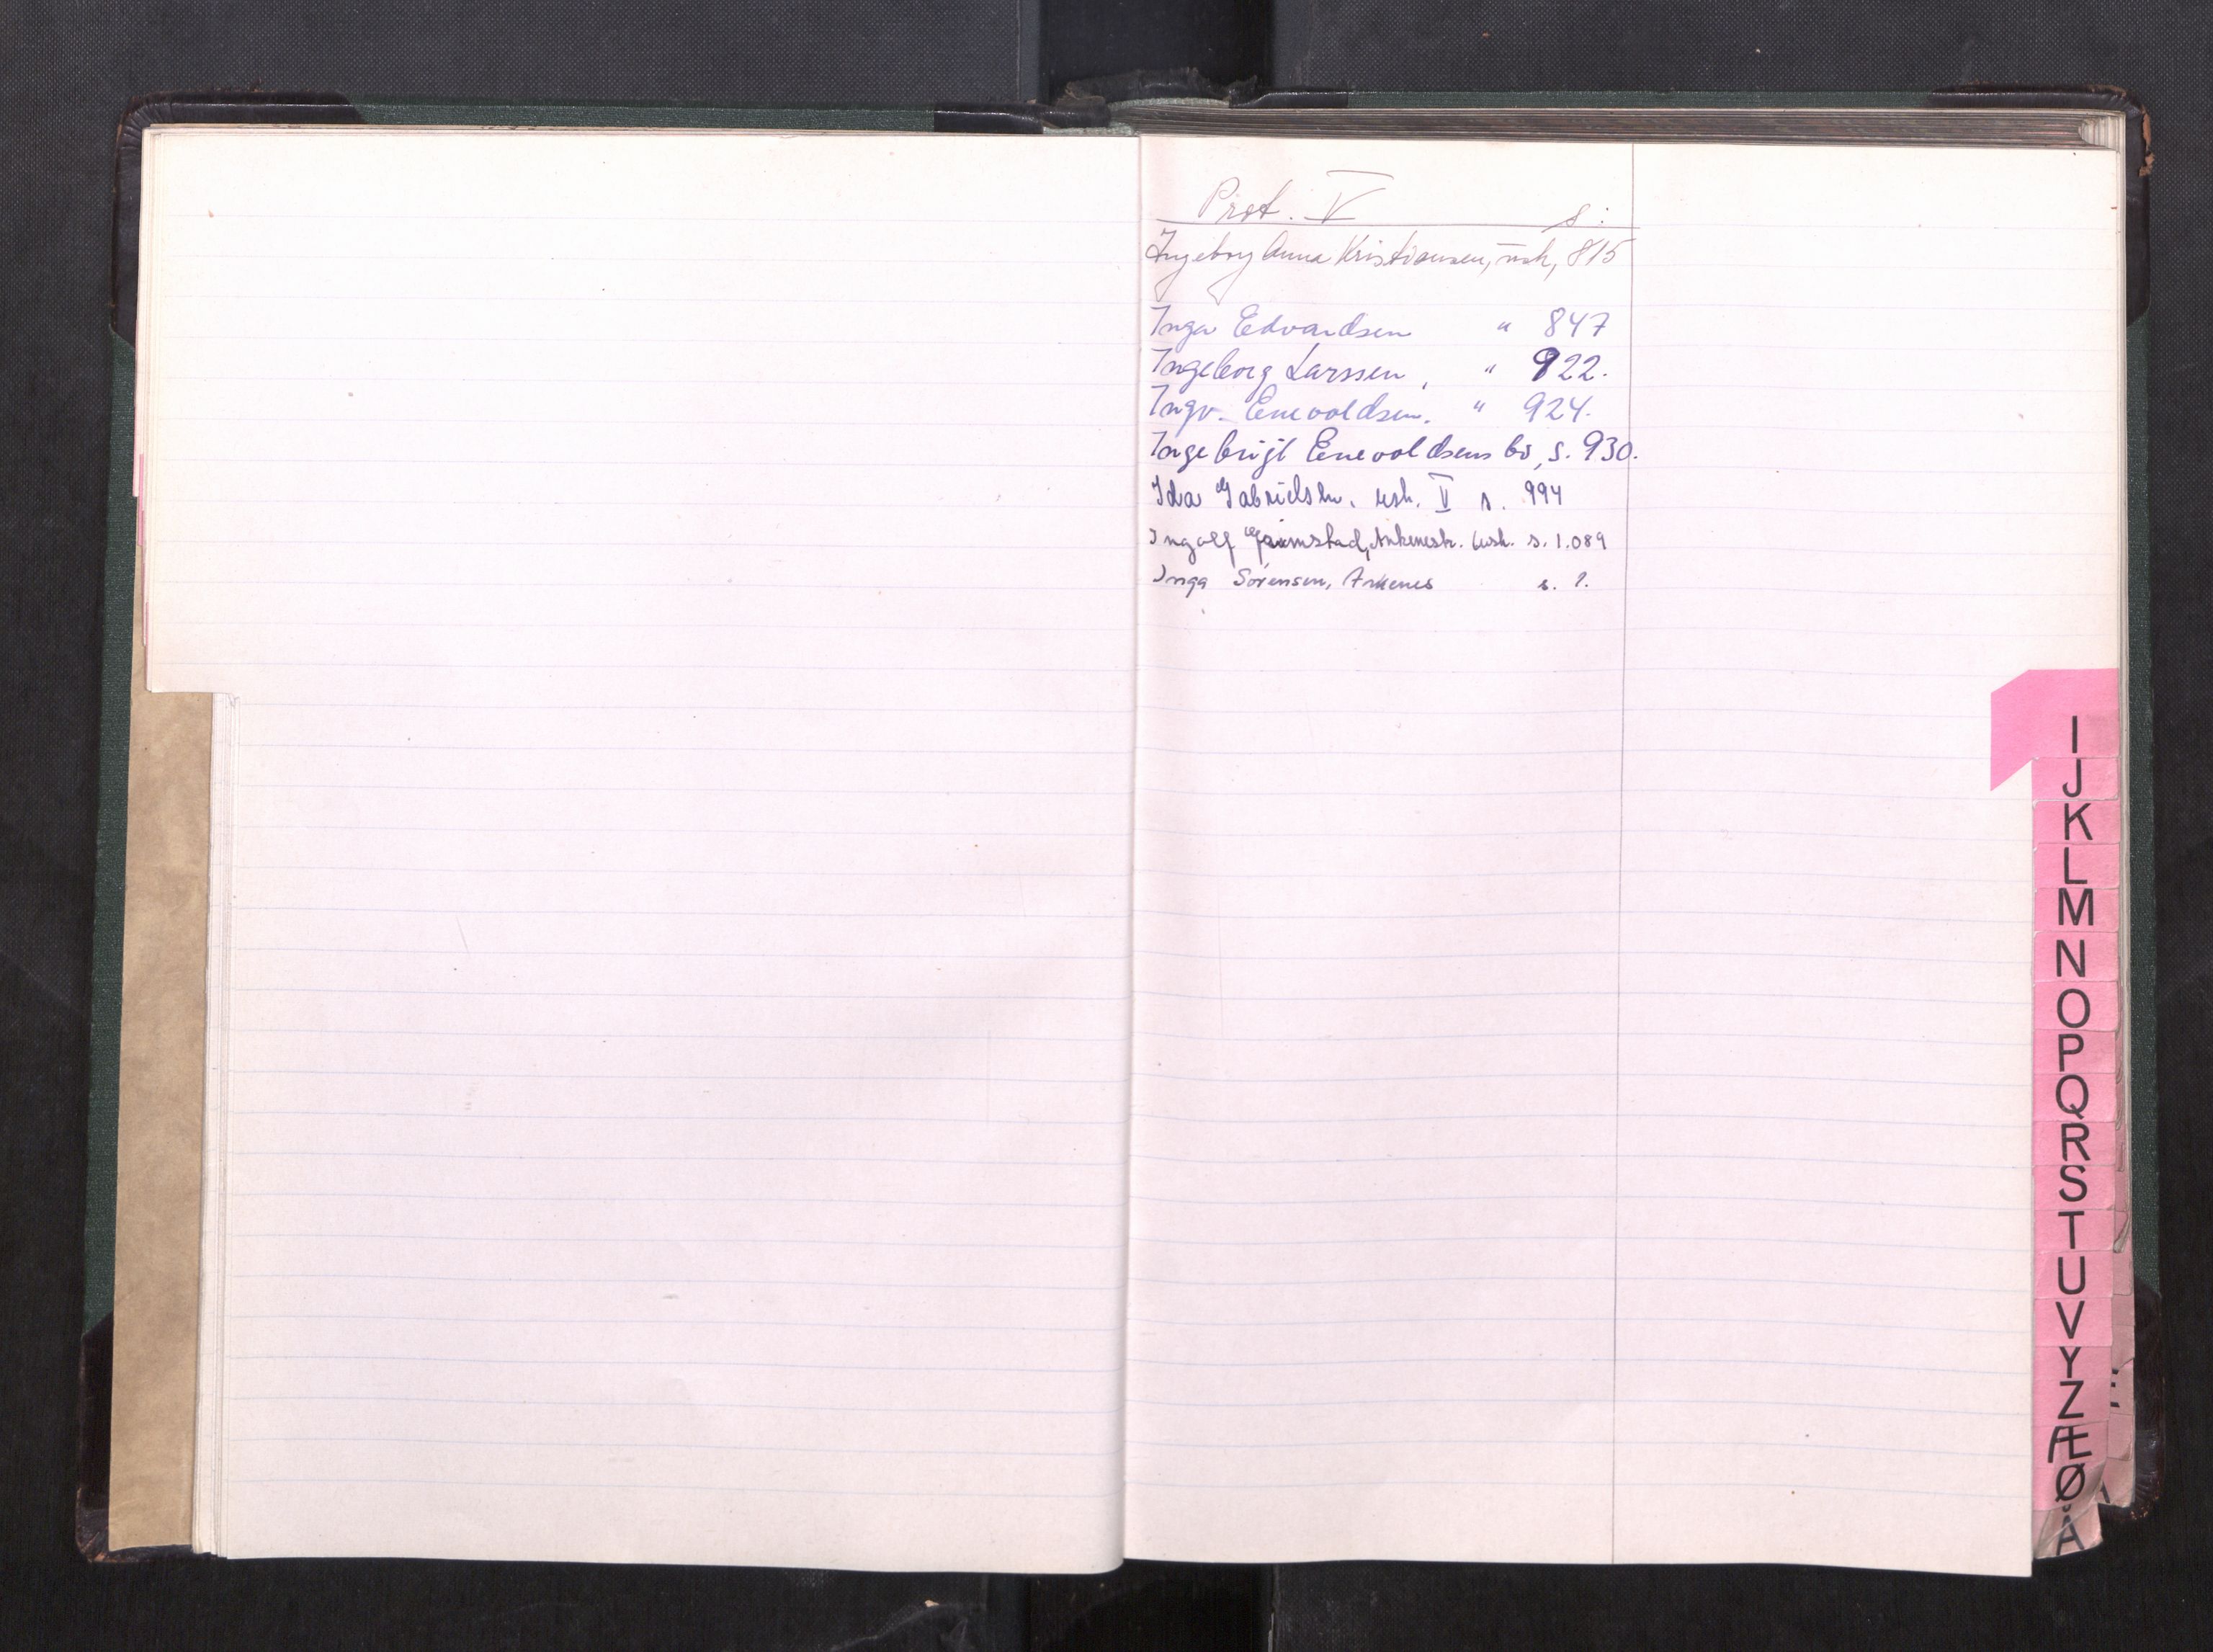 Prot. V s:
Ingeborg Anna Kristiansen, usk, 815
Inga Edvardsen " 847
Ingeborg Larssen, " 922.
Ingv. Enevoldsen. " 924.
Ingebrigt Enevoldsens bo, s. 930.
Ida Gabrielsen. usk. V s. 994
Ingolf Grimstad, Ankenesstr. usk. s. 1.089
Inga Sörensen, Ankenes s. 1.
I
J
K
L
M
N
O
P
Q
R
S
T
U
V
Y
Z
Æ
Ø
Å